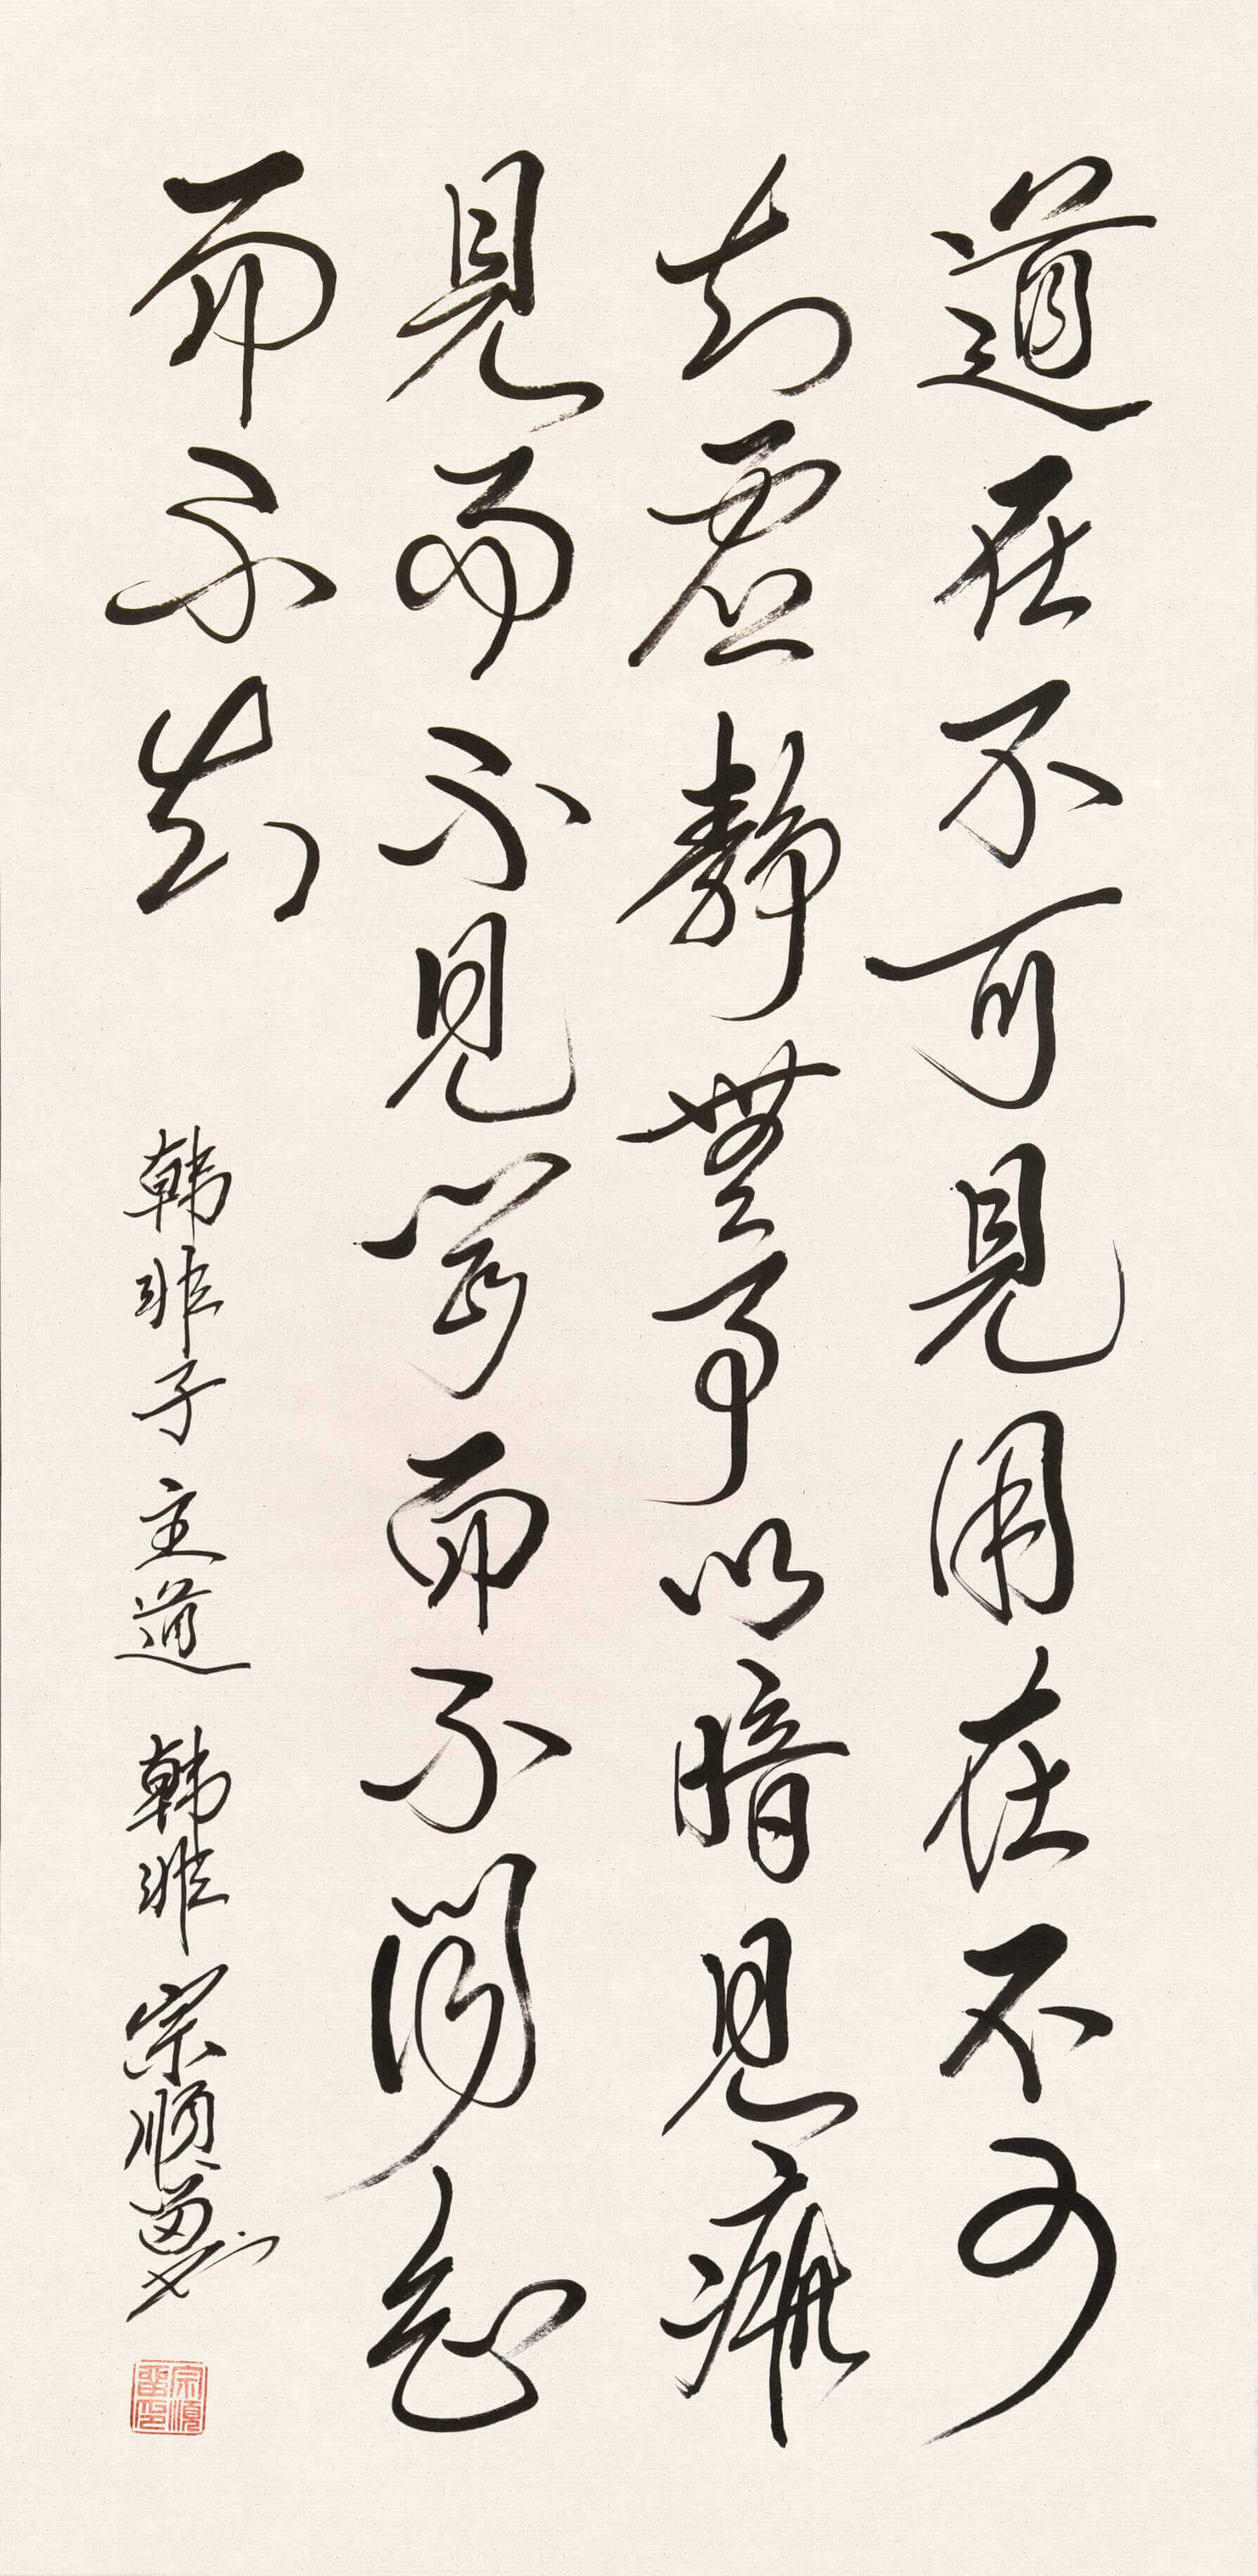 道在不可見用在不可
知虛靜無事以暗見疵
見而不見聞而不聞知
而不知
韩非子 主道 韩非 宗順留书
宗順留印